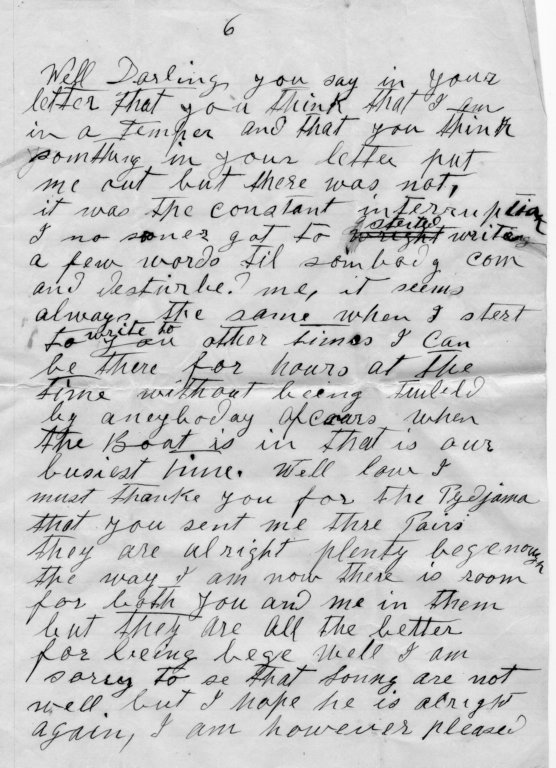 6
Well Darling, you say in your
letter that you think that I am
in a temper and that you think
somthing in your letter put
me out but there was not,
it was the constant interruption
I no soner got to started writeng
a few words til sombody com
and desturbed me, it seems
always the same when I stert
to write to you other times I can
be there for hours at the
time without being
by aneyboday of coars when
the Boat is in that is our
busiest time. Well love I
must thanke you for the Pydjama
that you sent me thre Pairs
they are alright plenty beg enough
the way I am now there is room
for both you and me in them
but they are all the better
for being bege Well I am
sorry to se that are not
well but I hope he is alright
again, I am however pleased